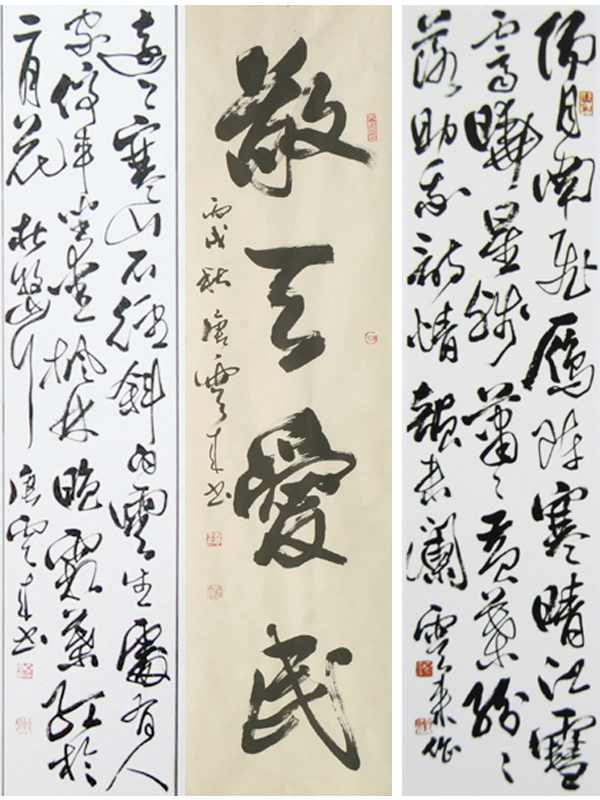 遠上寒山石徑斜白雲生處有人
家停車坐愛楓林晚霜葉紅於
二月花 杜牧山行 唐雲來书
敬天愛民
丙戌秋唐雲來书
陽月南飛雁陣寒晴江雪
霽星殘蕭〻黃葉紛〻
落助我詩情韻瀾 雲來作